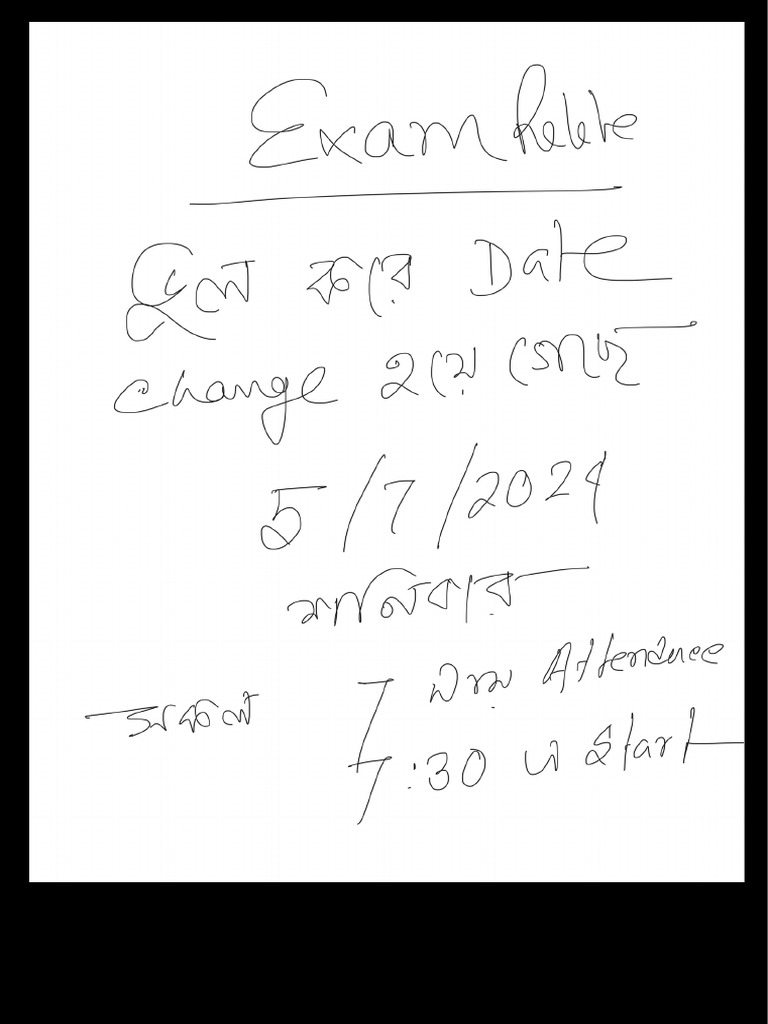 Exam Relete
ভুল করে Date
change হয়ে গেছে
5/7/2024
শনিবার
সকাল 7 টায় Attendance
7:30 এ Start